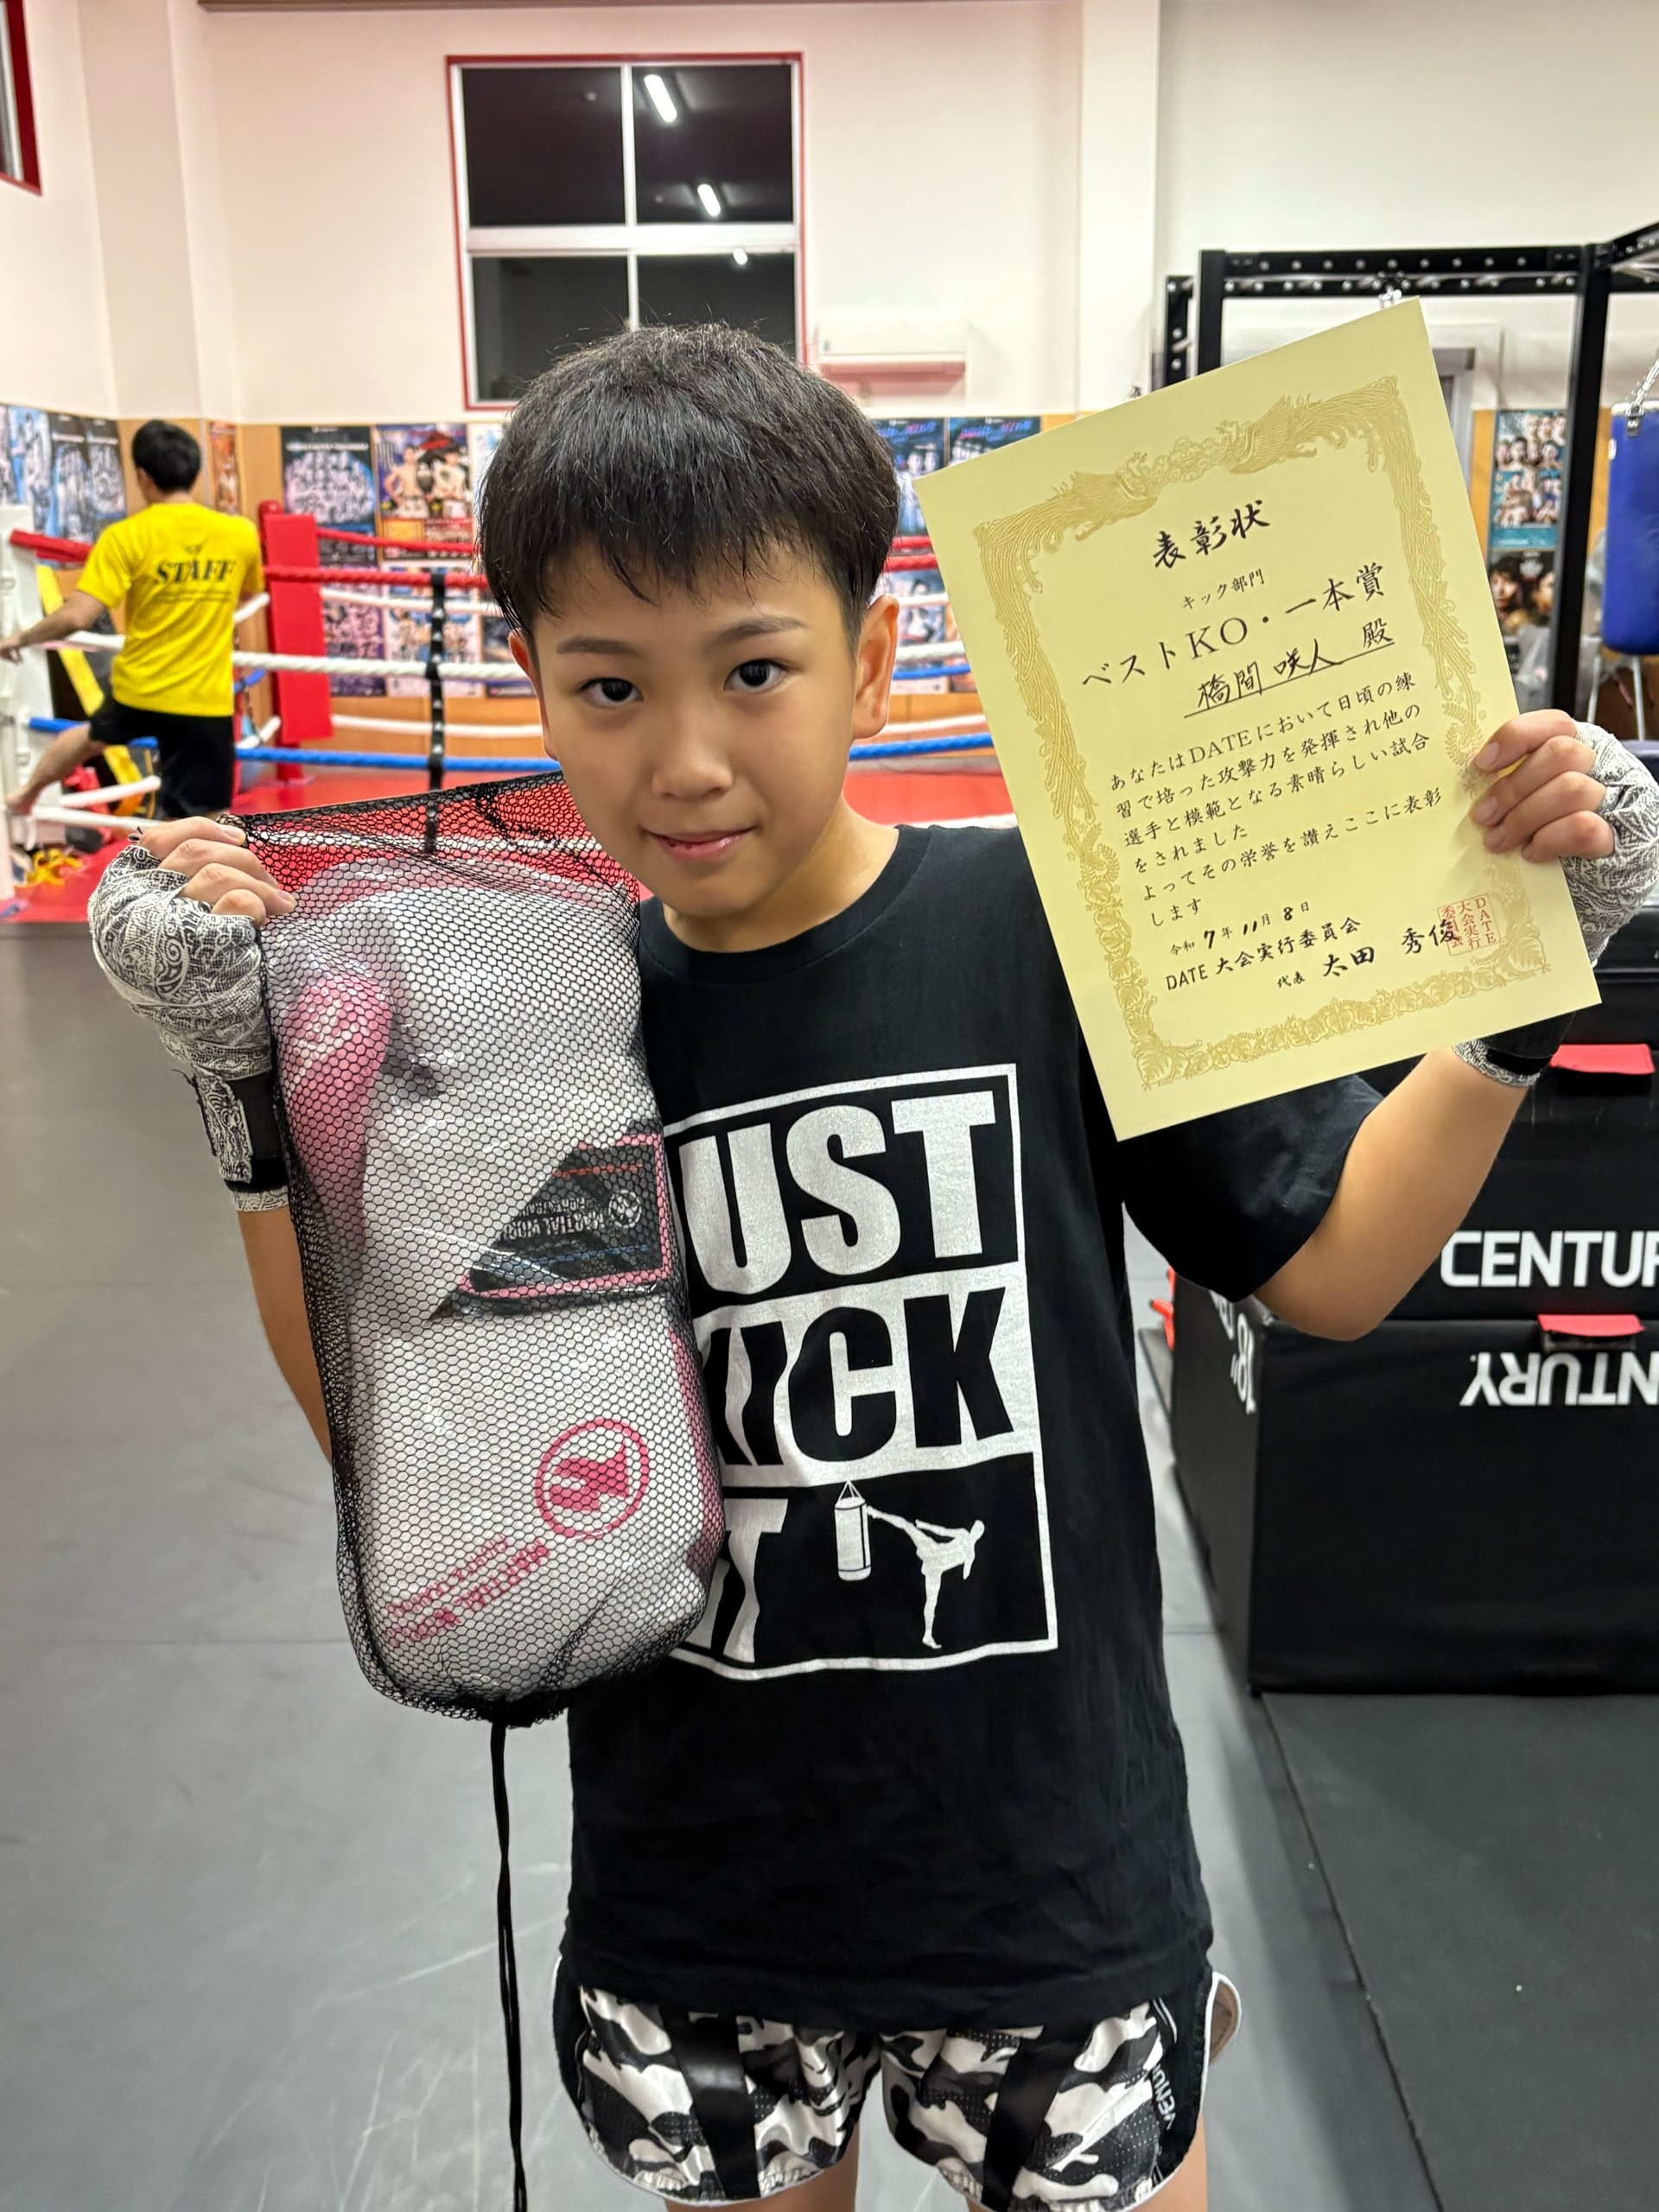 STAFF
表彰状
キック部門
ベストKO・一本賞
橋間 咲人 殿
あなたはDATEにおいて日頃の練
習で培った攻撃力を発揮され他の
選手と模範となる素晴らしい試合
をされました
よってその栄誉を讃えここに表彰
します
令和 7年 11月 8日
DATE 大会実行委員会
代表 太田 秀俊
DATE
大会実行
委員会
UST
KICK
IT
MARTIAL WOR
CENTUR
NTURY
18"
VENUM